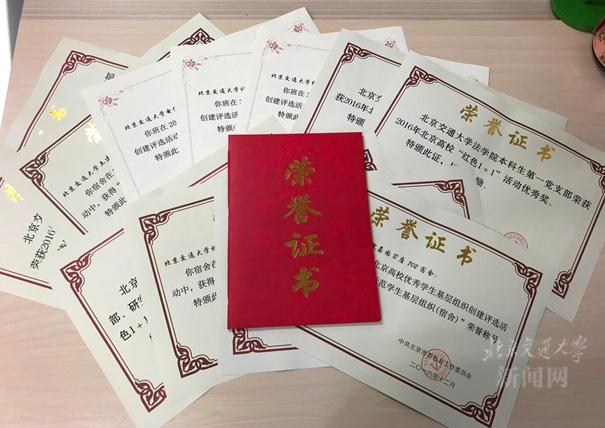 荣誉证书
北京交通大学法学院本科生第一党支部荣获
2016年北京高校“红色1+1”活动优秀奖。
特颁此证，
荣誉证书
嘉园B座702宿舍：
北京高校优秀学生基层组织创建评选活
范学生基层组织（宿舍）”荣誉称号
中共北京市委教育工作委员会
二〇一六年十二月
荣
誉
证
书
北京
获2016年
特颁此
北京交通大学
你班在
创建评选活动
特颁此
北京交通大学
你班在
创建评选活
特颁此
北京交通大学
你班在20
创建评选活动
特颁此
北京交通大学
你宿舍在
动中，获得
特颁
北京交
荣获2016
北京交通大学
你宿舍在
动中，获得
特颁此
北京
部、研
色1+1”
北京交通大学
新闻网